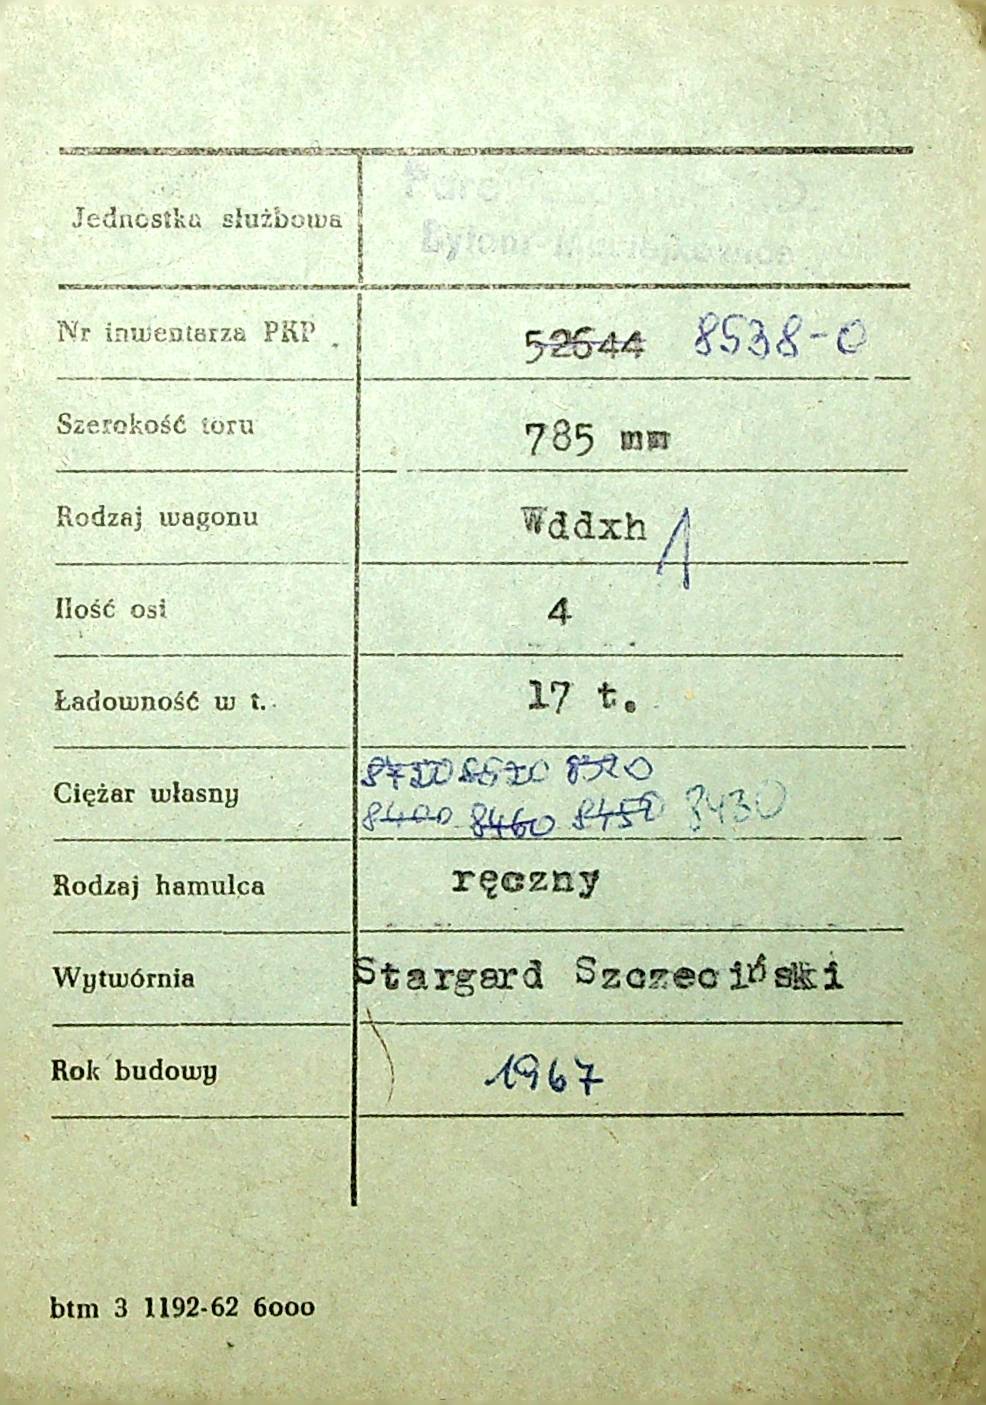 Jednostka służbowa
Bytom-Maciejkowice
Nr inwentarza PKP 52644 8538-0
Szerokość toru 785 mm
Rodzaj wagonu Wddxh 1
Ilość osi 4
Ładowność w t. 17 t.
8520
Ciężar własny
8400 8460 8450 8430
Rodzaj hamulca ręczny
Wytwórnia Stargard Szczeciński
Rok budowy 1967
btm 3 1192-62 6000